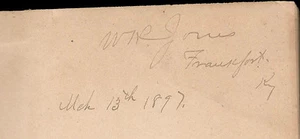 WR Jones
Frankfort.
Ky
Mch 13th 1897.